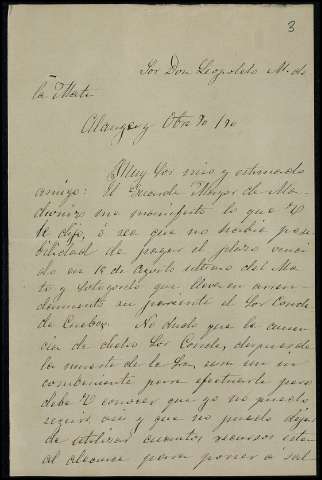 3
Sor Don Leopoldo M. de
la Mata
Alange y Obre 20/90
Muy Sor mio y estimado
amigo: El Guarda Mayor de
me manifiesta lo que V
le dijo, ó sea que no habia posi
bilidad de pagar el plazo venci
do en 15 de Agosto ultimo del Ma
to y que lleva en arren
damiento su pariente el Sor Conde
de No dudo que la ausen
cia de dicho Sor Conde, despues de
la muerte de la Sra, sea un in
conveniente para efectuarlo pero
debe V conocer que yo no puedo
seguir asi y que no puedo dejar
de utilizar cuantos recursos esten
al alcance para poner a sal